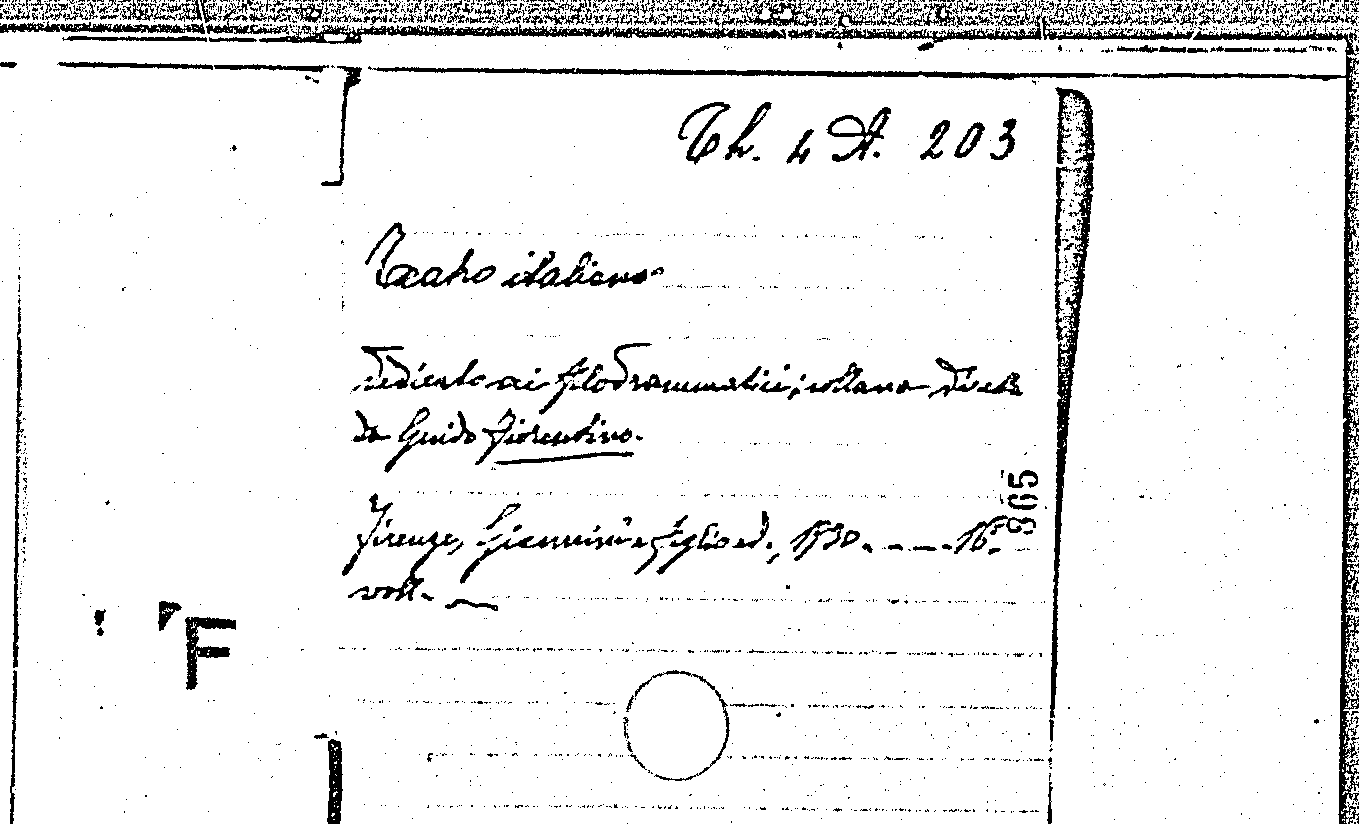 Th. 4 A. 203
Teatro italiano
dedicato ai filodrammatici; collana diretta
da Guido Fiorentino.
Firenze, Giannini e figlio ed., 1930. - - - 16°.
voll. —
365
F